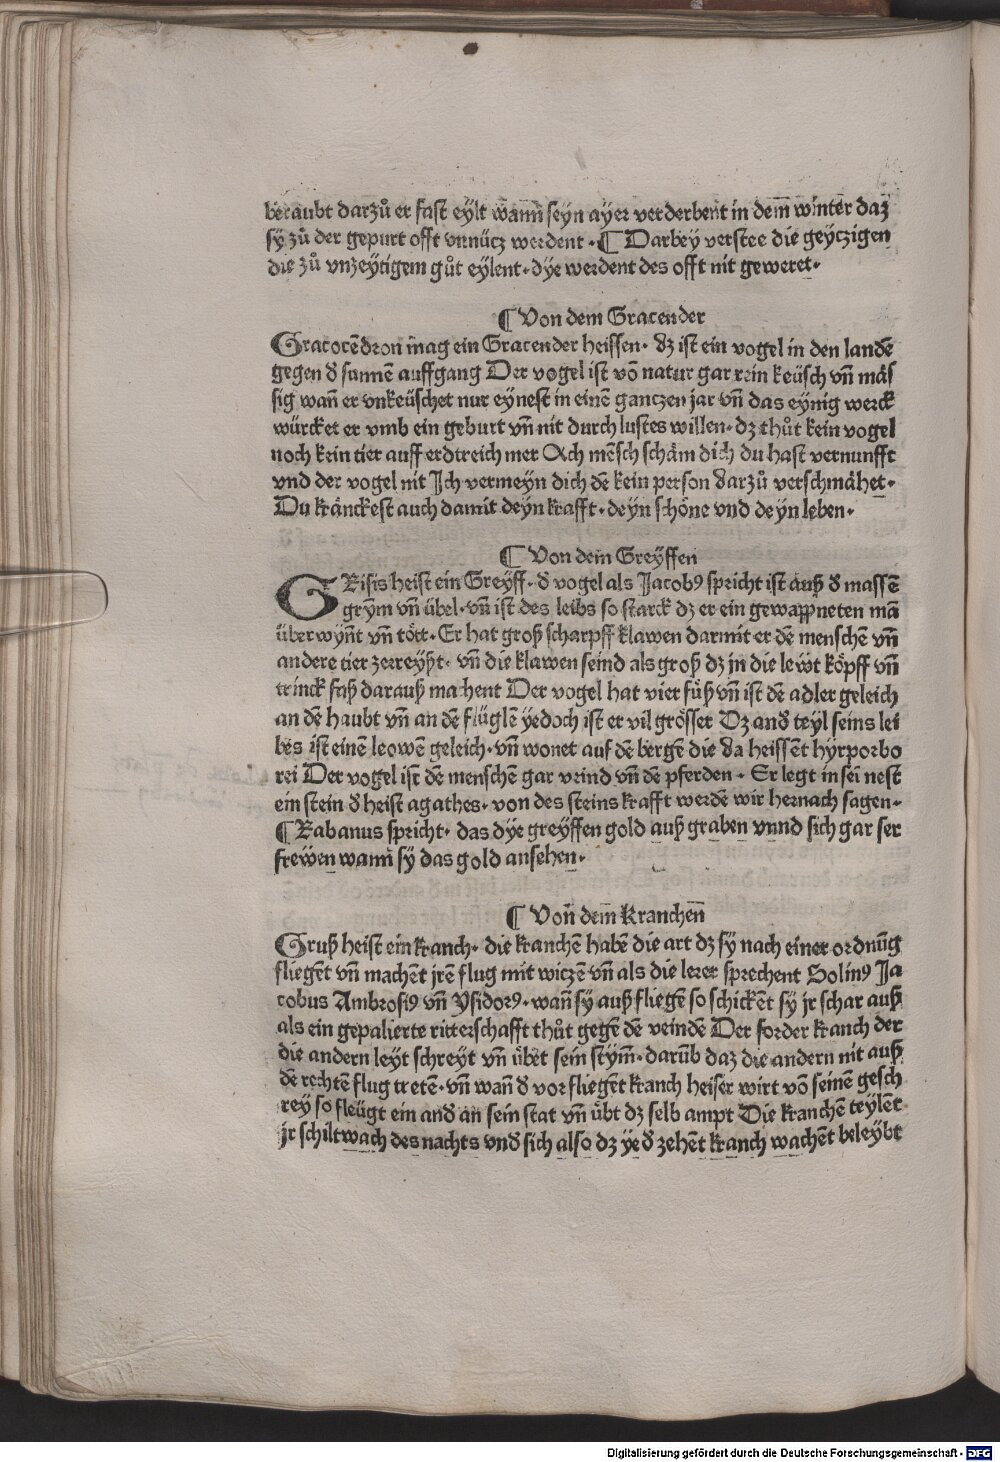 beraubt darzů er fast eylt wann seyn ayer verderbent in dem̃ winter daz
sy zů der gepurt offt vnnücz werdent · ¶ Darbey verstee die geyczigen
die zů vnzeytigem gůt eylent · dye werdent des offt nit geweret ·
¶ Von dem Gracender
Gracocẽdron mag ein Gracender heissen · dz ist ein vogel in den landẽ
gegen d̕ sunnẽ auffgang Der vogel ist võ natur gar rein keüsch vñ mäs
sig wañ er vnkeüschet nur eynest in einẽ ganczen jar vñ das eynig werck
würcket er vmb ein geburt vñ nit durch lustes willen · dz thůt kein vogel
noch kein tier auff erdtreich mer Ach mẽsch schäm dich du hast vernunfft
vnd der vogel nit Ich vermeyn dich dẽ kein person darzů verschmähet ·
Du kränckest auch damit deyn krafft · deyn schöne vnd deyn leben ·
¶ Von dem Greÿffen
GRisis heist ein Greÿff · d̕ vogel als Jacobꝰ spricht ist auß d̕ massẽ
grÿm vñ übel · vñ ist des leibs so starck dz er ein gewappneten mã
überwÿnt vñ tött · Er hat groß scharpff klawen darmit er dẽ menschẽ vñ
andere tier zerreÿßt · vñ die klawen seind als groß dz jn die leẅt köpff vñ
trinckfaß darauß machent Der vogel hat vier füß vñ ist dẽ adler geleich
an dẽ haubt vñ an dẽ flüglẽ ÿedoch ist er vil grösser Dz and̕ teyl seins lei
bes ist einẽ leowẽ geleich · vñ wonet auf dẽ bergẽ die da heissẽt hÿrporbo
rei Der vogel ist dẽ menschẽ gar vrind vñ dẽ pferden · Er legt in sei nest
ein stein d̕ heist agathes · von des steins krafft werdẽ wir hernach sagen ·
¶ Rabanus spricht · das dÿe greÿffen gold auß graben vnnd sich gar ser
freẅen wann sÿ das gold ansehen ·
¶ Von dem Kranchen
Gruß heist ein kranch · die kranchẽ habẽ die art dz sÿ nach einer ordnũg
fliegẽt vñ machẽt jrẽ flug mit wiczẽ vñ als die lerer sprechent Solinꝰ Ja
cobus Ambrosiꝰ vñ Ysidorꝰ · wañ sÿ auß fliegẽ so schickẽt sÿ jr schar auß
als ein gepalierte ritterschafft thůt gegẽ dẽ veindẽ Der forder kranch der
die andern leyt schreyt vñ übet sein stÿm̃ · darũb daz die andern nit auß
dẽ rechtẽ flug tretẽ · vñ wañ d̕ vor fliegẽt kranch heiser wirt võ seinẽ gesch
rey so fleügt ein and̕ an sein stat vñ übt dz selb ampt Die kranchẽ teylẽt
jr schiltwach des nachts vnd̕ sich also dz ÿed̕ zehẽt kranch wachẽt beleÿbt
Digitalisierung gefördert durch die Deutsche Forschungsgemeinschaft - DFG